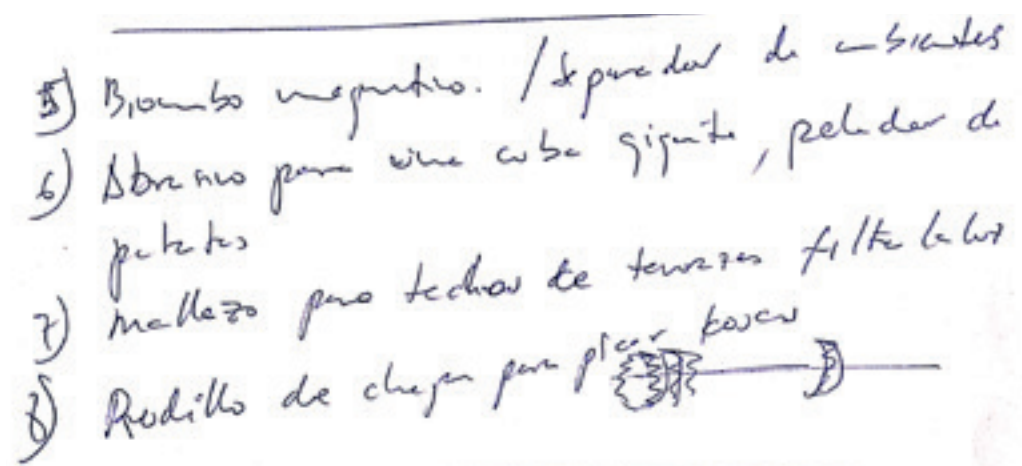 5) Biombo magnetico. / Separador de ambientes
6) Abrasivo para una cuba gigante, pelador de
patatas
7) Mallazo para techar de terrazas filtra la luz
8) Rodillo de chapa para picar